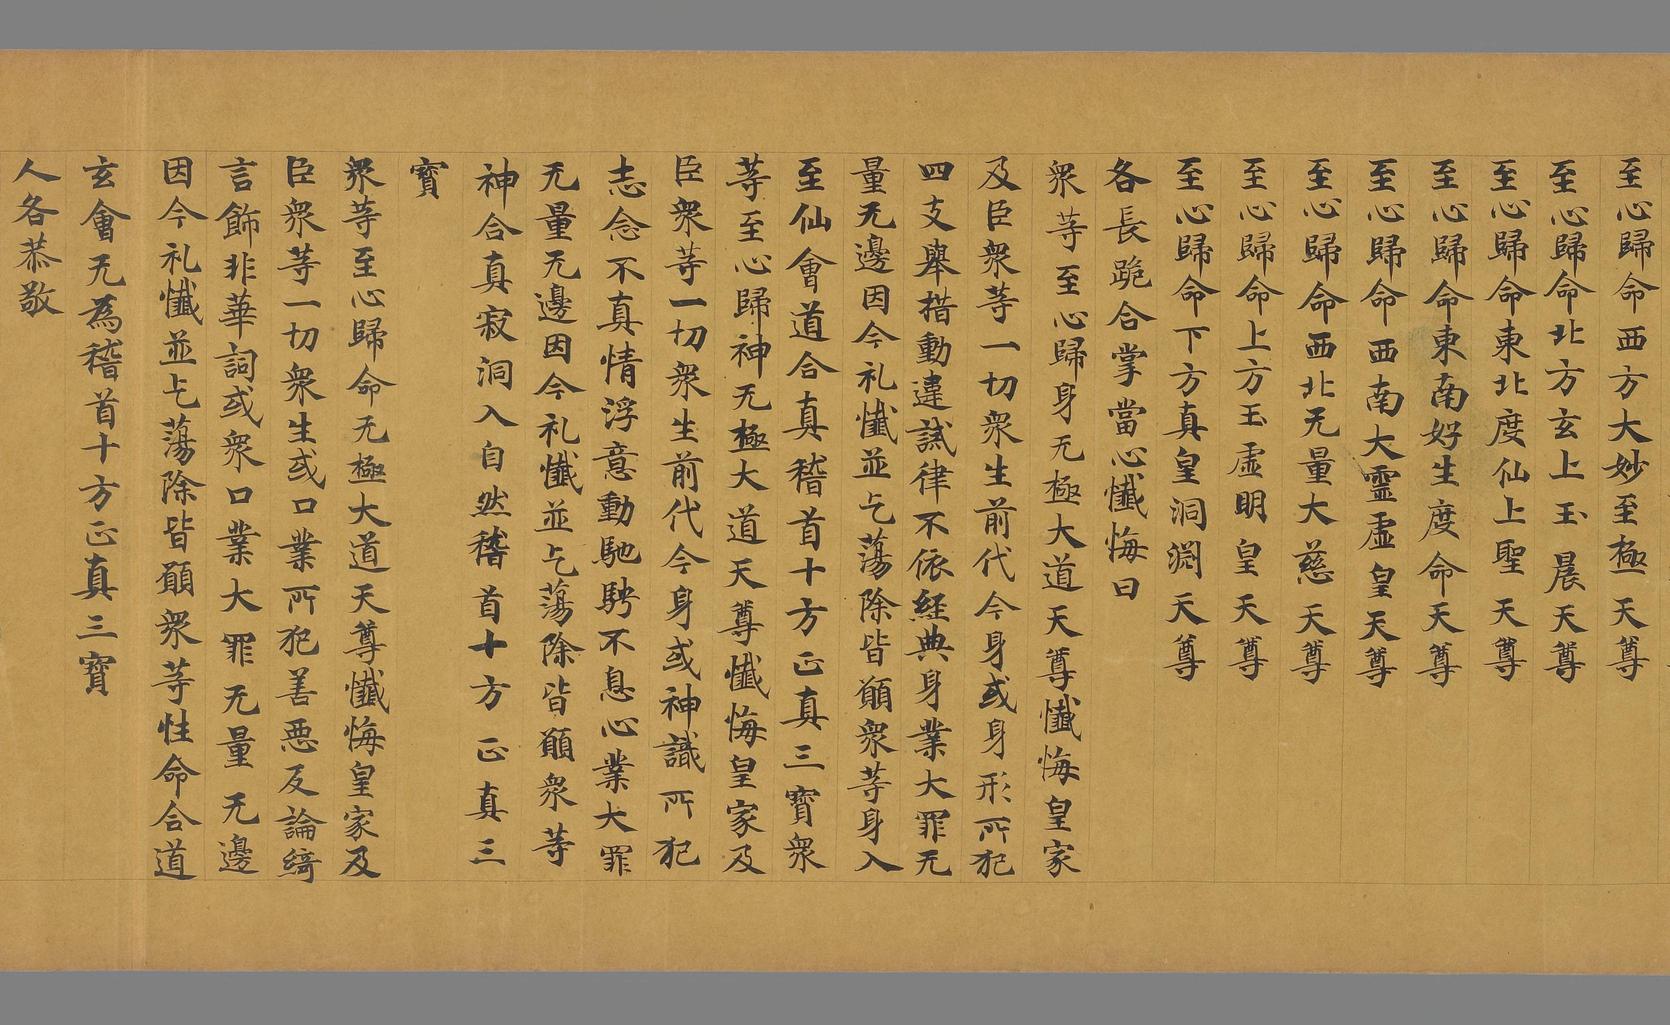 至心歸命西方大妙至極天尊
至心歸命北方玄上玉晨天尊
至心歸命東北度仙上聖天尊
至心歸命東南好生度命天尊
至心歸命西南大靈虛皇天尊
至心歸命西北无量大慈天尊
至心歸命上方玉虛明皇天尊
至心歸命下方真皇洞淵天尊
各長跪合掌當心懺悔曰
衆等至心歸身无極大道天尊懺悔皇家
及臣衆等一切衆生前代今身或身形所犯
四支舉措動違試律不依經典身業大罪无
量无邊因今礼懺並乞蕩除皆願衆等身入
至仙會道合真稽首十方正真三寶衆
等至心歸神无極大道天尊懺悔皇家及
臣衆等一切衆生前代今身或神識所犯
志念不真情浮意動馳騁不息心業大罪
无量无邊因今礼懺並乞蕩除皆願衆等
神合真寂洞入自然稽首十方正真三
寶
衆等至心歸命无極大道天尊懺悔皇家及
臣衆等一切衆生或口業所犯善惡反論綺
言飾非華詞或衆口業大罪无量无邊
因今礼懺並乞蕩除皆願衆等性命合道
玄會无為稽首十方正真三寶
人各恭敬